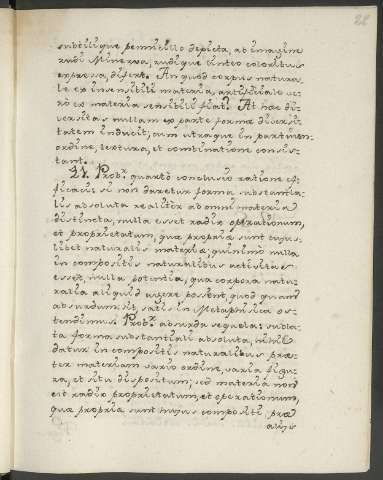 22
subtilique pennicillo depicta, ab imagine
rudi Minerva, rudique linteo coloribus
expressa, difert. An quod corpus natura-
le ex insensibili materia, artificiale ve-
rò ex materia sensibili fiat? At hæc di-
versitas nullam ex parte formæ diversi-
tatem inducit, cum utraque in partium
ordine, textura, et combinatione consis-
tant.
21. Prob.r quartò conclusio ratione ef-
ficaci: si non daretur forma substantia-
lis absoluta realitèr ab omni materia
distincta, nulla esset radix operationum,
et proprietatum, quæ propriæ sunt cujus-
libet naturalis materiæ, quinimò nulla
in compositis naturalibus activitas
esset, nulla potentia, qua corpora natu-
ralia aliquid agere possent, quod quam
absurdum sit, satis in Metaphisica os-
tendimus. Prob.r absurda sequela: subla-
ta forma substantiali absoluta, nihil
datur in compositis naturalibus præ-
ter materiam vario ordine, varia figu-
ra, et situ dispositum; sed materia non
est radix proprietatum, et operationum,
quæ propriæ sunt hujus compositi præ